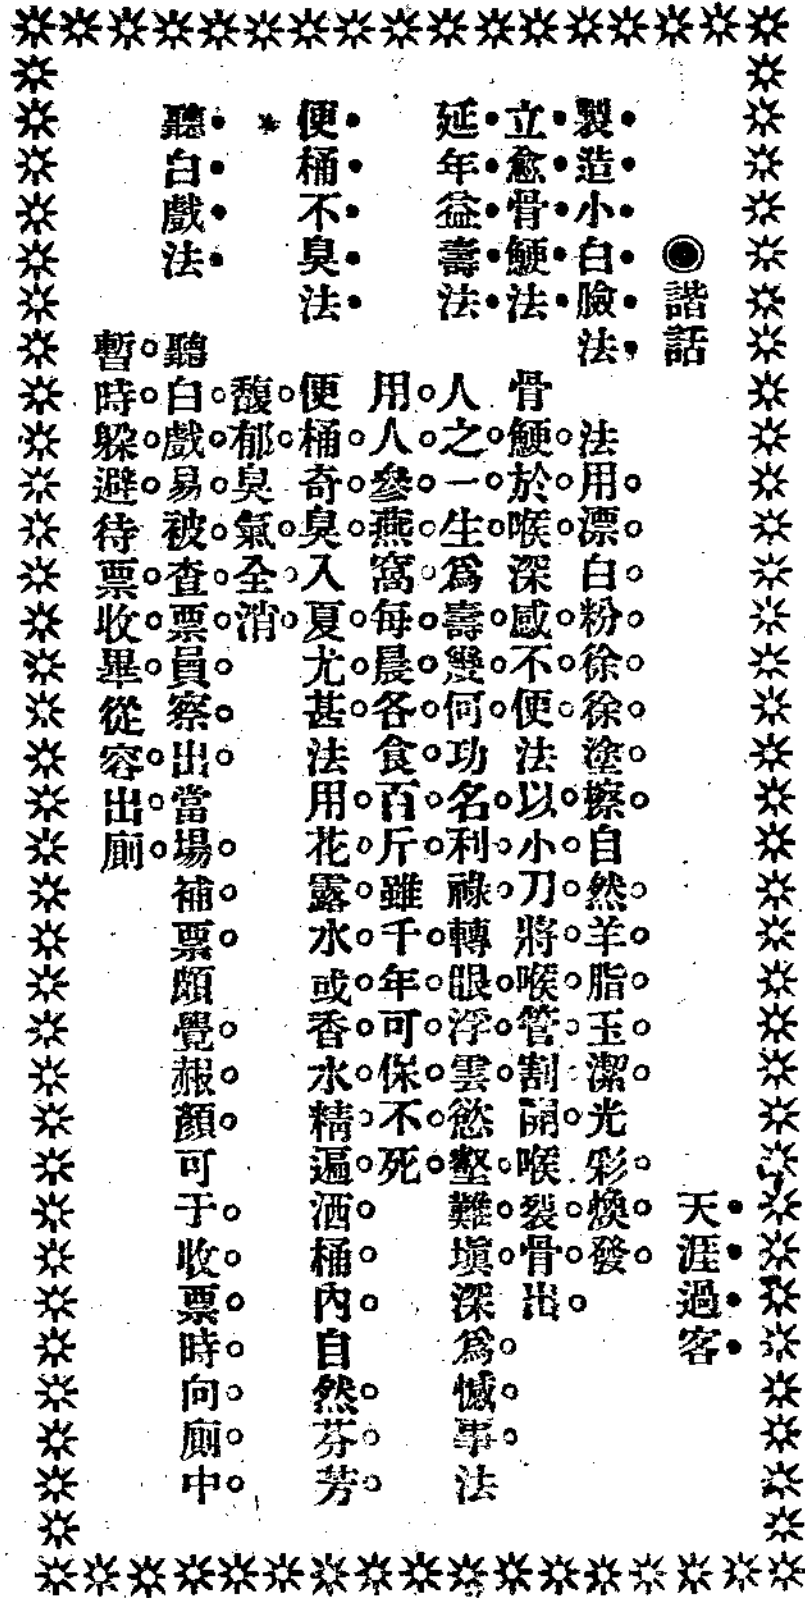 ◉諧話
天涯過客
製造小白臉法　法用漂白粉徐徐塗擦自然羊脂玉潔光彩煥發
立愈骨鯁法　骨鯁於喉深感不便法以小刀將喉管割開喉裂骨出
延年益壽法　人之一生爲壽幾何功名利祿轉眼浮雲慾壑難塡深爲憾事法
用人參燕窩每晨各食百斤雖千年可保不死
便桶不臭法　便桶奇臭入夏尤甚法用花露水或香水精遍洒桶內自然芬芳
馥郁臭氣全消
聽白戲法　聽白戲易被查票員察出當場補票頗覺赧顏可于收票時向廁中
暫時躱避待票收畢從容出廁